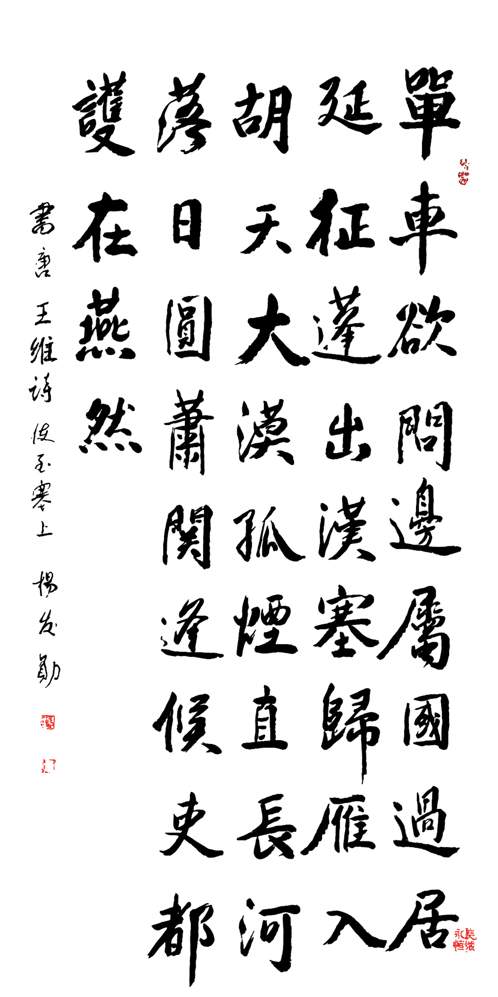 單車欲問邊屬國過居
延征蓬出漢塞歸雁入
胡天大漠孤煙直長河
落日圓蕭關逢候吏都
護在燕然
書唐王維詩使至塞上 楊發勛